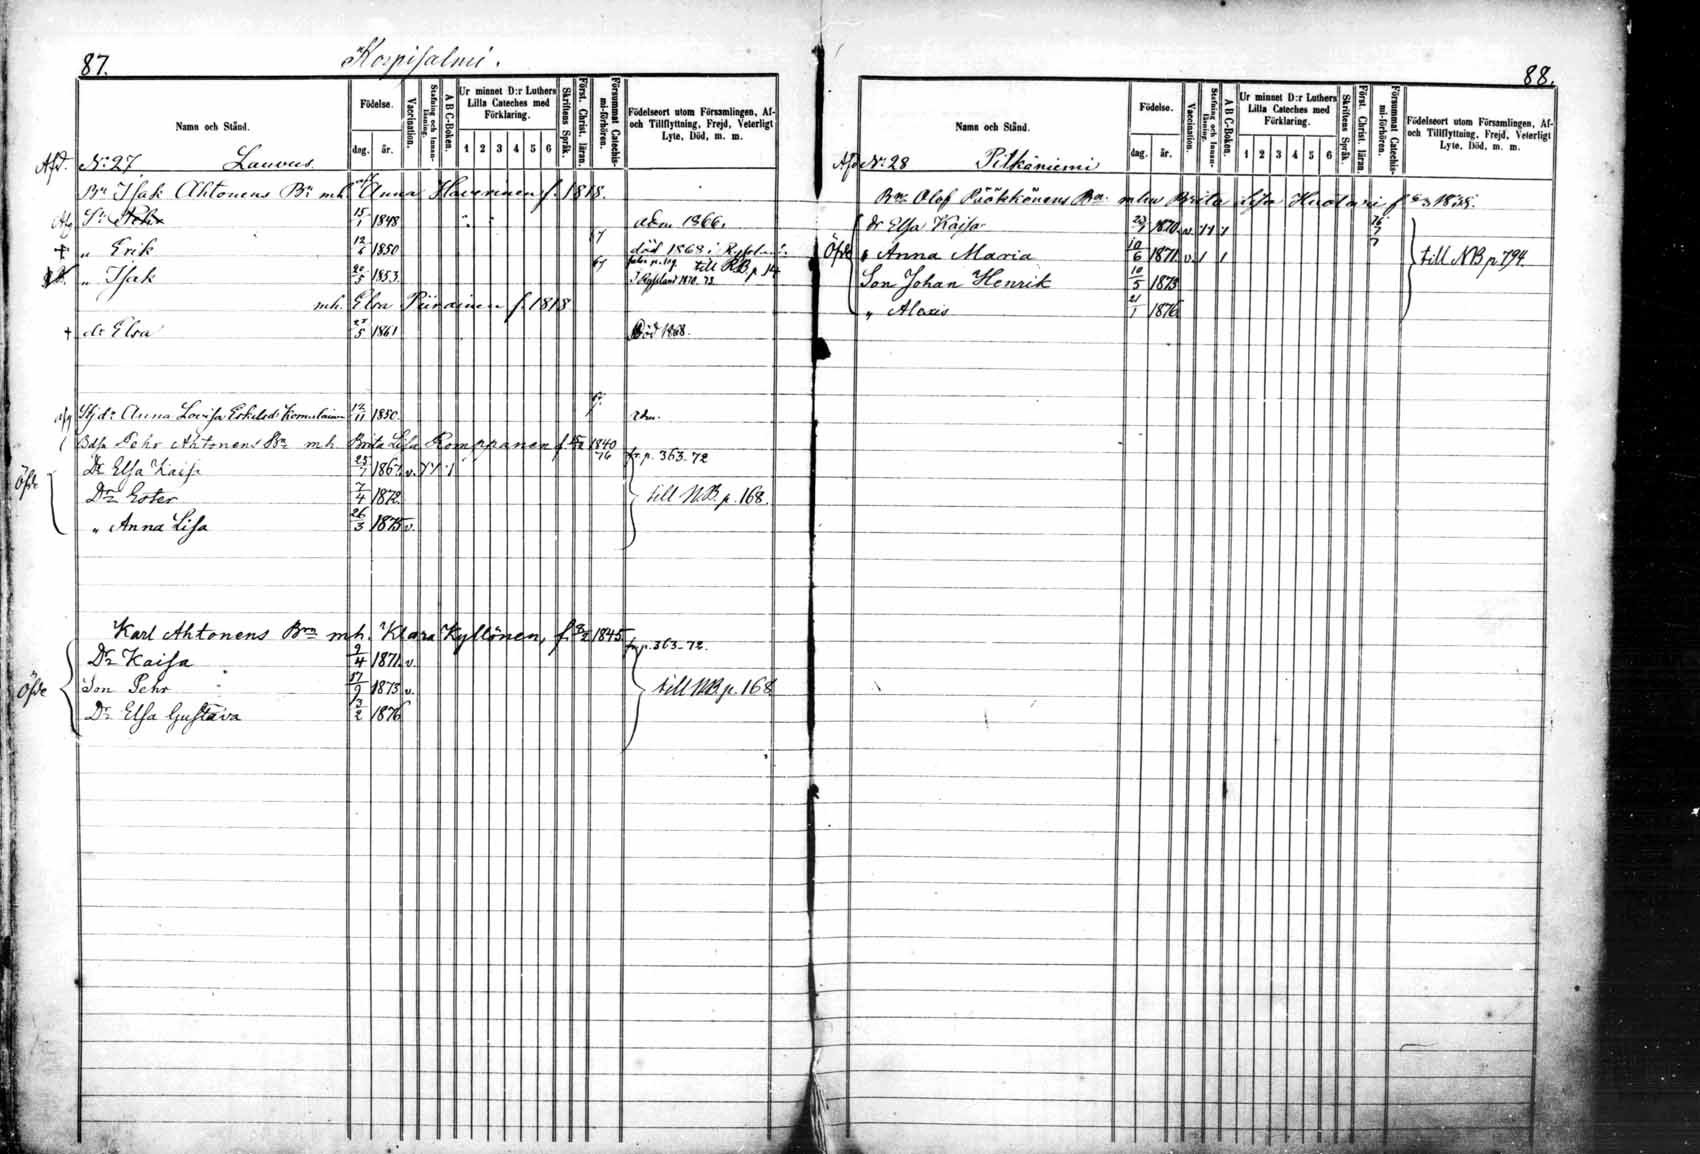 87.
Korpisalmi.
Namn och Stånd.
Födelse.
dag.
år.
Vaccination.
Stafning och Innanläsning.
A B C-Boken.
Ur minnet D:r Luthers Lilla Cateches med Förklaring.
1 2 3 4 5 6
Skriftens Språk.
Först. Christ. läran.
Försummat Catechismi-förhören.
Födelseort utom Församlingen, Af- och Tillflyttning, Frejd, Veterligt Lyte, Död, m. m.
Afd. No: 27 Lauvus
Bn Isak Ahtonens Bn mh. Anna Haverinen f. 1818.
Afg Sn Pehr 15/1 1848 adm 1866.
+ „ Erik 12/6 1850 död 1868 i
„ Isak 20/5 1853. till RB p. 14
mh. Elsa Piirainen f. 1818
+ dr Elsa 27/5 1861 Död 1868.
afg Stjdr Anna Lovisa Eskelsdr Komulainen 12/11 1850.
Pehr Ahtonens Bn mh. Brita Lisa Romppanen f. 1840
76 fr. p. 363-72
Dr Elsa Kaisa 25/7 1867 v.
Öfde
Dr Ester 7/4 1872. till NB. p. 168.
„ Anna Lisa 26/3 1875 v.
Karl Ahtonens Bn mh. Klara Kyllönen, f. 8/2 1845
fr. p. 363-72.
Dr Kaisa 9/4 1871 v.
Öfde Son Pehr 17/9 1873 v. till NB p. 168
Dr Elsa Gustava 3/2 1876
88.
Namn och Stånd.
Födelse.
dag.
år.
Vaccination.
Stafning och Innanläsning.
A B C-Boken.
Ur minnet D:r Luthers Lilla Cateches med Förklaring.
1 2 3 4 5 6
Skriftens Språk.
Först. Christ. läran.
Försummat Catechismi-förhören.
Födelseort utom Församlingen, Af- och Tillflyttning, Frejd, Veterligt Lyte, Död, m. m.
Afd No: 28 Pitkäniemi
Bn Olof Pöökkönens Bn Brita Lisa f. 1838.
dr Elsa Kaisa 1870 v. 76
Öfde „ Anna Maria 10/6 1871 v. 1 1 7 till NB p. 794.
Son Johan Henrik 10/5 1873
„ Alexis 21/1 1876